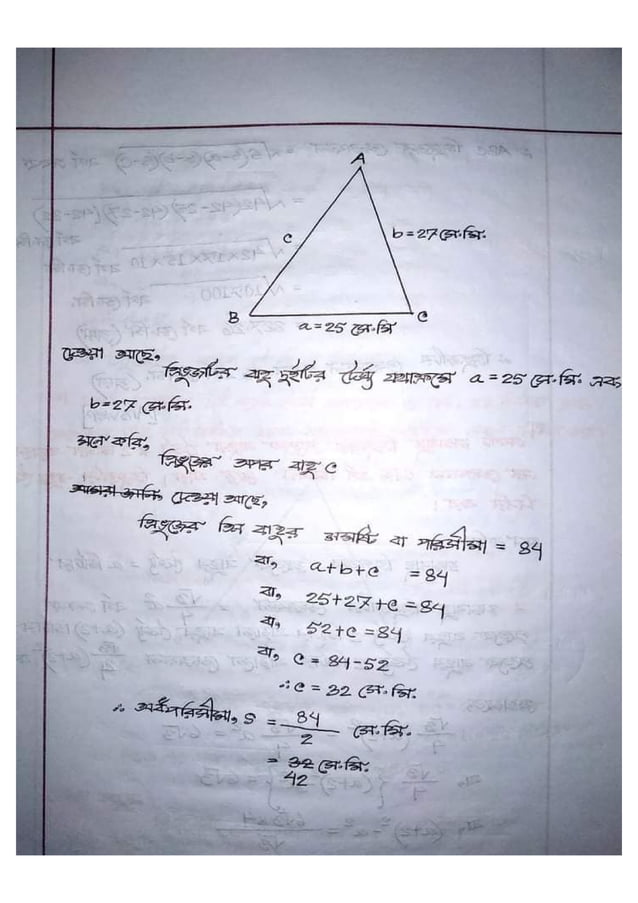 A
c
b = 27 সে.মি.
B
C
a = 25 সে.মি
দেওয়া আছে,
ত্রিভুজটির বাহু দুইটির দৈর্ঘ্য যথাক্রমে a = 25 সে.মি. এবং
b = 27 সে.মি.
মনে করি,
ত্রিভুজের অপর বাহু c
আমরা জানি, দেওয়া আছে,
ত্রিভুজের তিন বাহুর সমষ্টি বা পরিসীমা = 84
বা, a+b+c = 84
বা, 25+27+c = 84
বা, 52+c = 84
বা, c = 84-52
∴ c = 32 সে.মি.
∴ অর্ধপরিসীমা, S = 84/2 সে.মি.
= 32 সে.মি.
42